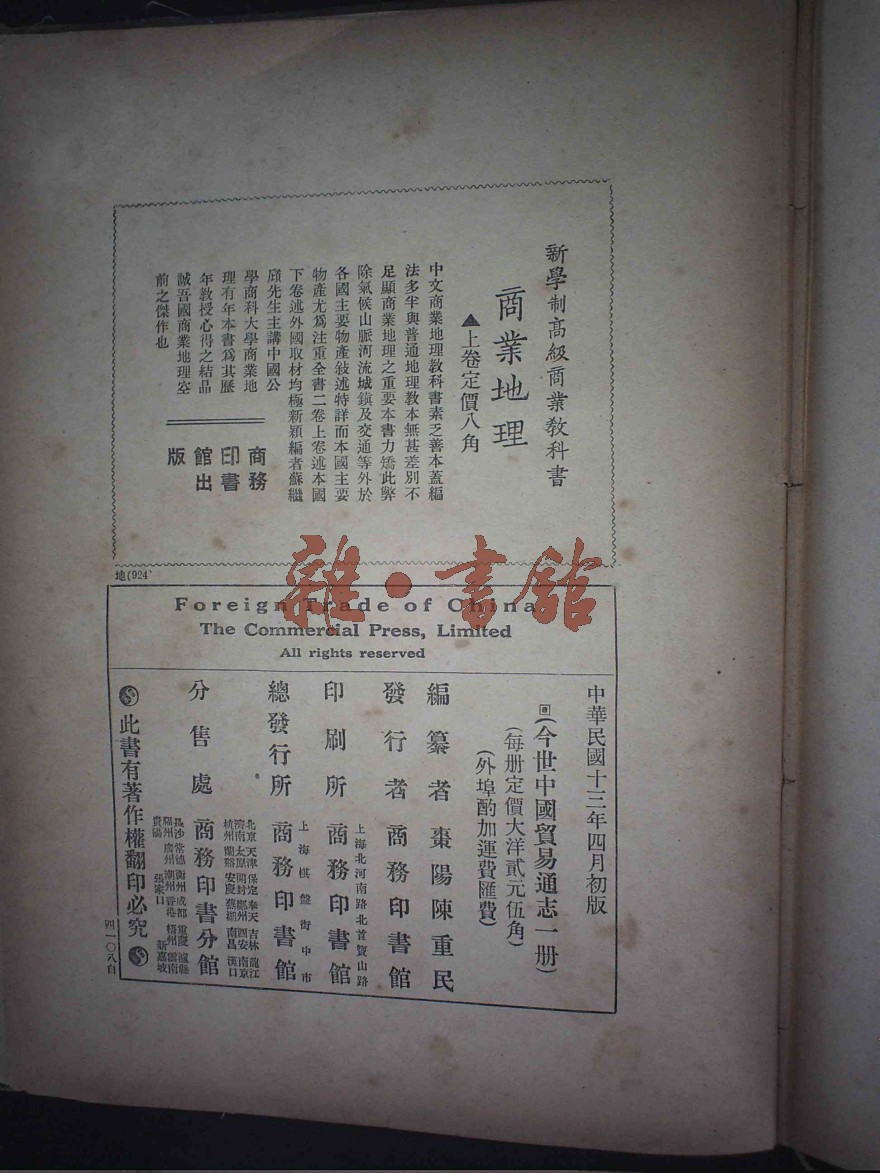 新學制高級商業教科書
商業地理
▲上卷定價八角
中文商業地理教科書素乏善本蓋編
法多半與普通地理教本無甚差別不
足顯商業地理之重要本書力矯此弊
除氣候山脈河流城鎮及交通等外於
各國主要物產敍述特詳而本國主要
物產尤爲注重全書二卷上卷述本國
下卷述外國取材均極新穎編者蘇繼
廎先生主講中國公
學商科大學商業地
理有年本書爲其歷
年教授心得之結晶
誠吾國商業地理空
前之傑作也
商務
印書
館出
版
地(924)
雜·書館
Foreign Trade of China
The Commercial Press, Limited
All rights reserved
中華民國十三年四月初版
(今世中國貿易通志一册)
(每册定價大洋貳元伍角)
(外埠酌加運費匯費)
編纂者 棗陽陳重民
發行者 商務印書館
上海北河南路北首寶山路
印刷所 商務印書館
上海棋盤街中市
總發行所 商務印書館
北京 天津 保定 奉天 吉林 龍江
濟南 太原 開封 鄭州 西安 南京
杭州 蘭谿 安慶 蕪湖 南昌 漢口
分售處 商務印書分館
長沙 常德 衡州 成都 重慶 瀘縣
福州 廣州 潮州 香港 梧州 雲南
貴陽 張家口 新嘉坡
此書有著作權翻印必究
四一〇八自